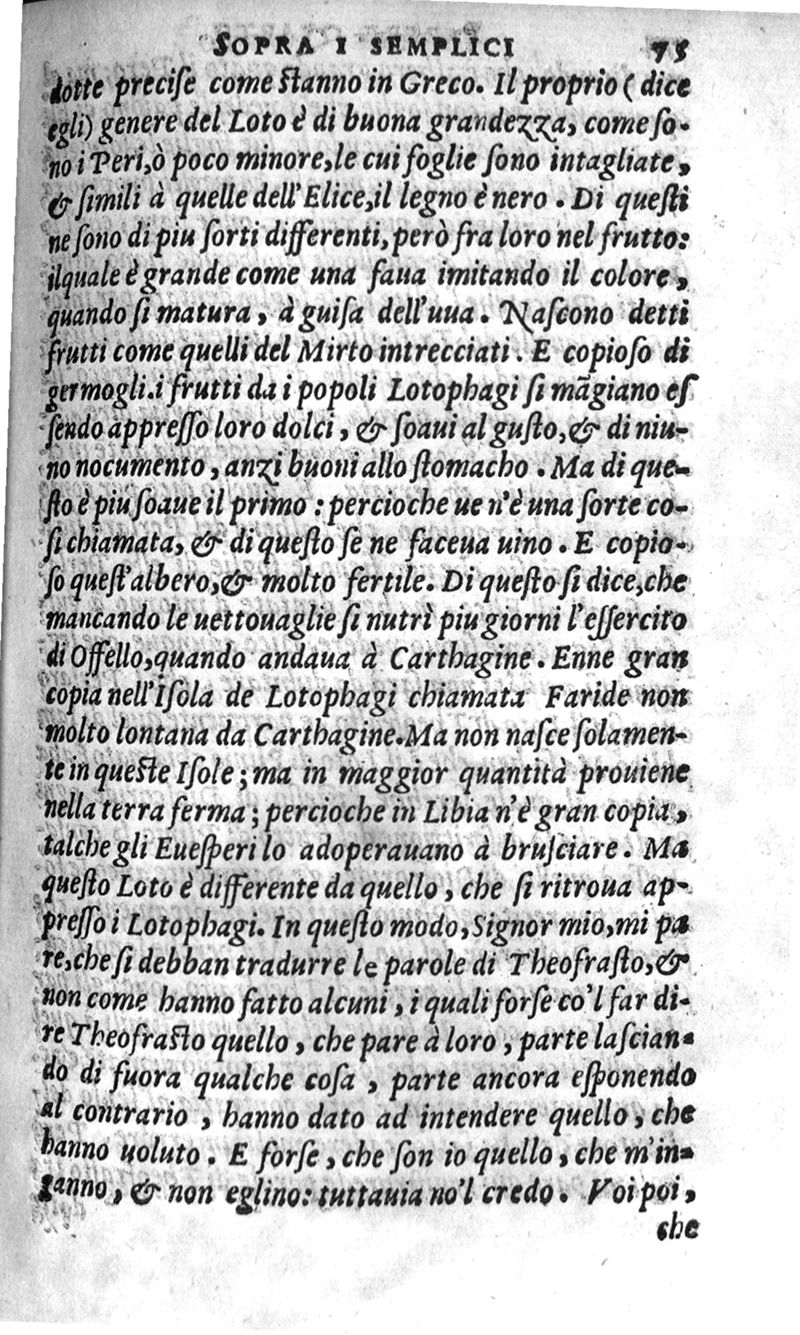 SOPRA I SEMPLICI 75
dotte preciſe come ſtanno in Greco. Il proprio (dice
egli) genere del Loto è di buona grandezza, come ſo-
no i Peri,ò poco minore,le cui foglie ſono intagliate,
& ſimili à quelle dell'Elice,il legno è nero. Di queſti
ne ſono di piu ſorti differenti,però fra loro nel frutto:
ilquale è grande come una faua imitando il colore,
quando ſi matura, à guiſa dell'uua. Naſcono detti
frutti come quelli del Mirto intrecciati. E copioſo di
germogli.i frutti da i popoli Lotophagi ſi mãgiano eſ
ſendo appreſſo loro dolci, & ſoaui al guſto,& di niu-
no nocumento, anzi buoni allo ſtomacho. Ma di que-
ſto è piu ſoaue il primo: percioche ue n'è una ſorte co-
ſi chiamata, & di queſto ſe ne faceua uino. E copio-
ſo queſt'albero,& molto fertile. Di queſto ſi dice,che
mancando le uettouaglie ſi nutrì piu giorni l'eſſercito
di Offello,quando andaua à Carthagine. Enne gran
copia nell'Iſola de Lotophagi chiamata Faride non
molto lontana da Carthagine.Ma non naſce ſolamen-
te in queſte Iſole; ma in maggior quantità prouiene
nella terra ferma; percioche in Libia n'è gran copia,
talche gli Eueſperi lo adoperauano à bruſciare. Ma
queſto Loto è differente da quello, che ſi ritroua ap-
preſſo i Lotophagi. In queſto modo,Signor mio,mi pa
re,che ſi debban tradurre le parole di Theofraſto,&
non come hanno fatto alcuni, i quali forſe co'l far di-
re Theofraſto quello, che pare à loro, parte laſcian-
do di fuora qualche coſa, parte ancora eſponendo
al contrario, hanno dato ad intendere quello, che
hanno uoluto. E forſe, che ſon io quello, che m'in-
ganno, & non eglino: tuttauia no'l credo. Voi poi,
che